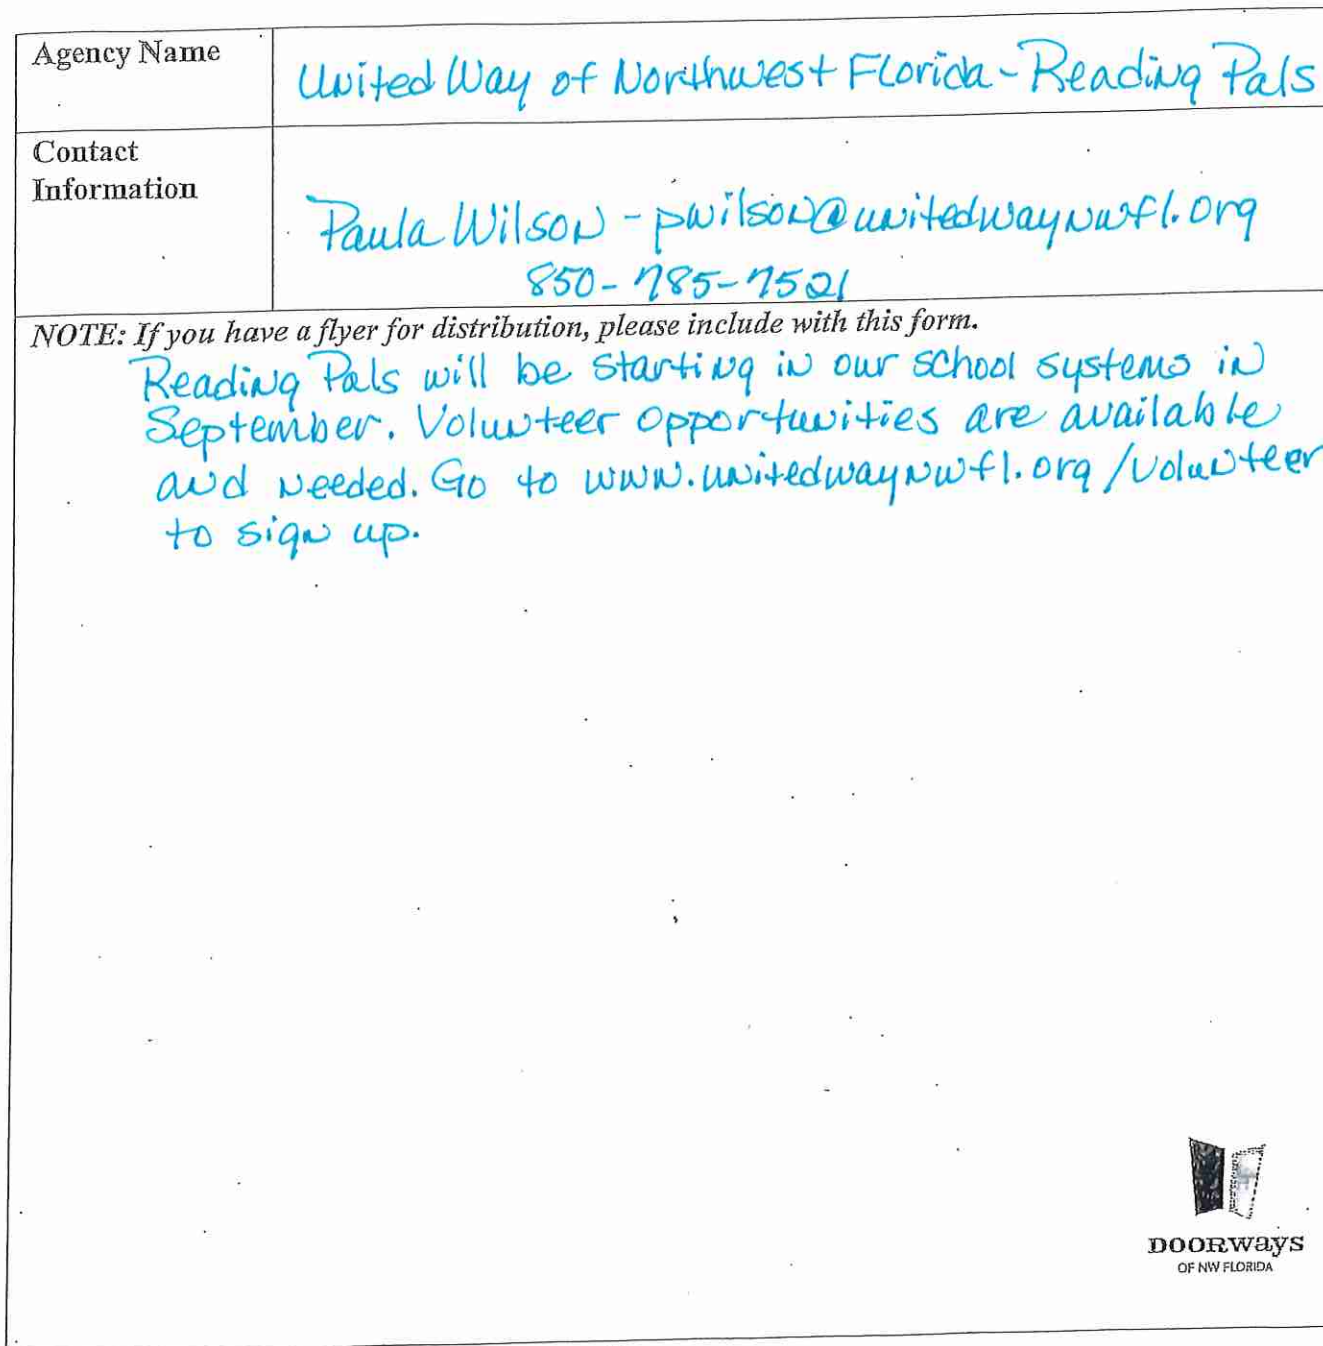 Agency Name
United Way of Northwest Florida - Reading Pals
Contact
Information
Paula Wilson - pwilson@unitedwaynwfl.org
850-785-7521
NOTE: If you have a flyer for distribution, please include with this form.
Reading Pals will be starting in our school systems in
September. Volunteer opportunities are available
and needed. Go to www.unitedwaynwfl.org/volunteer
to sign up.
DOORWays
OF NW FLORIDA